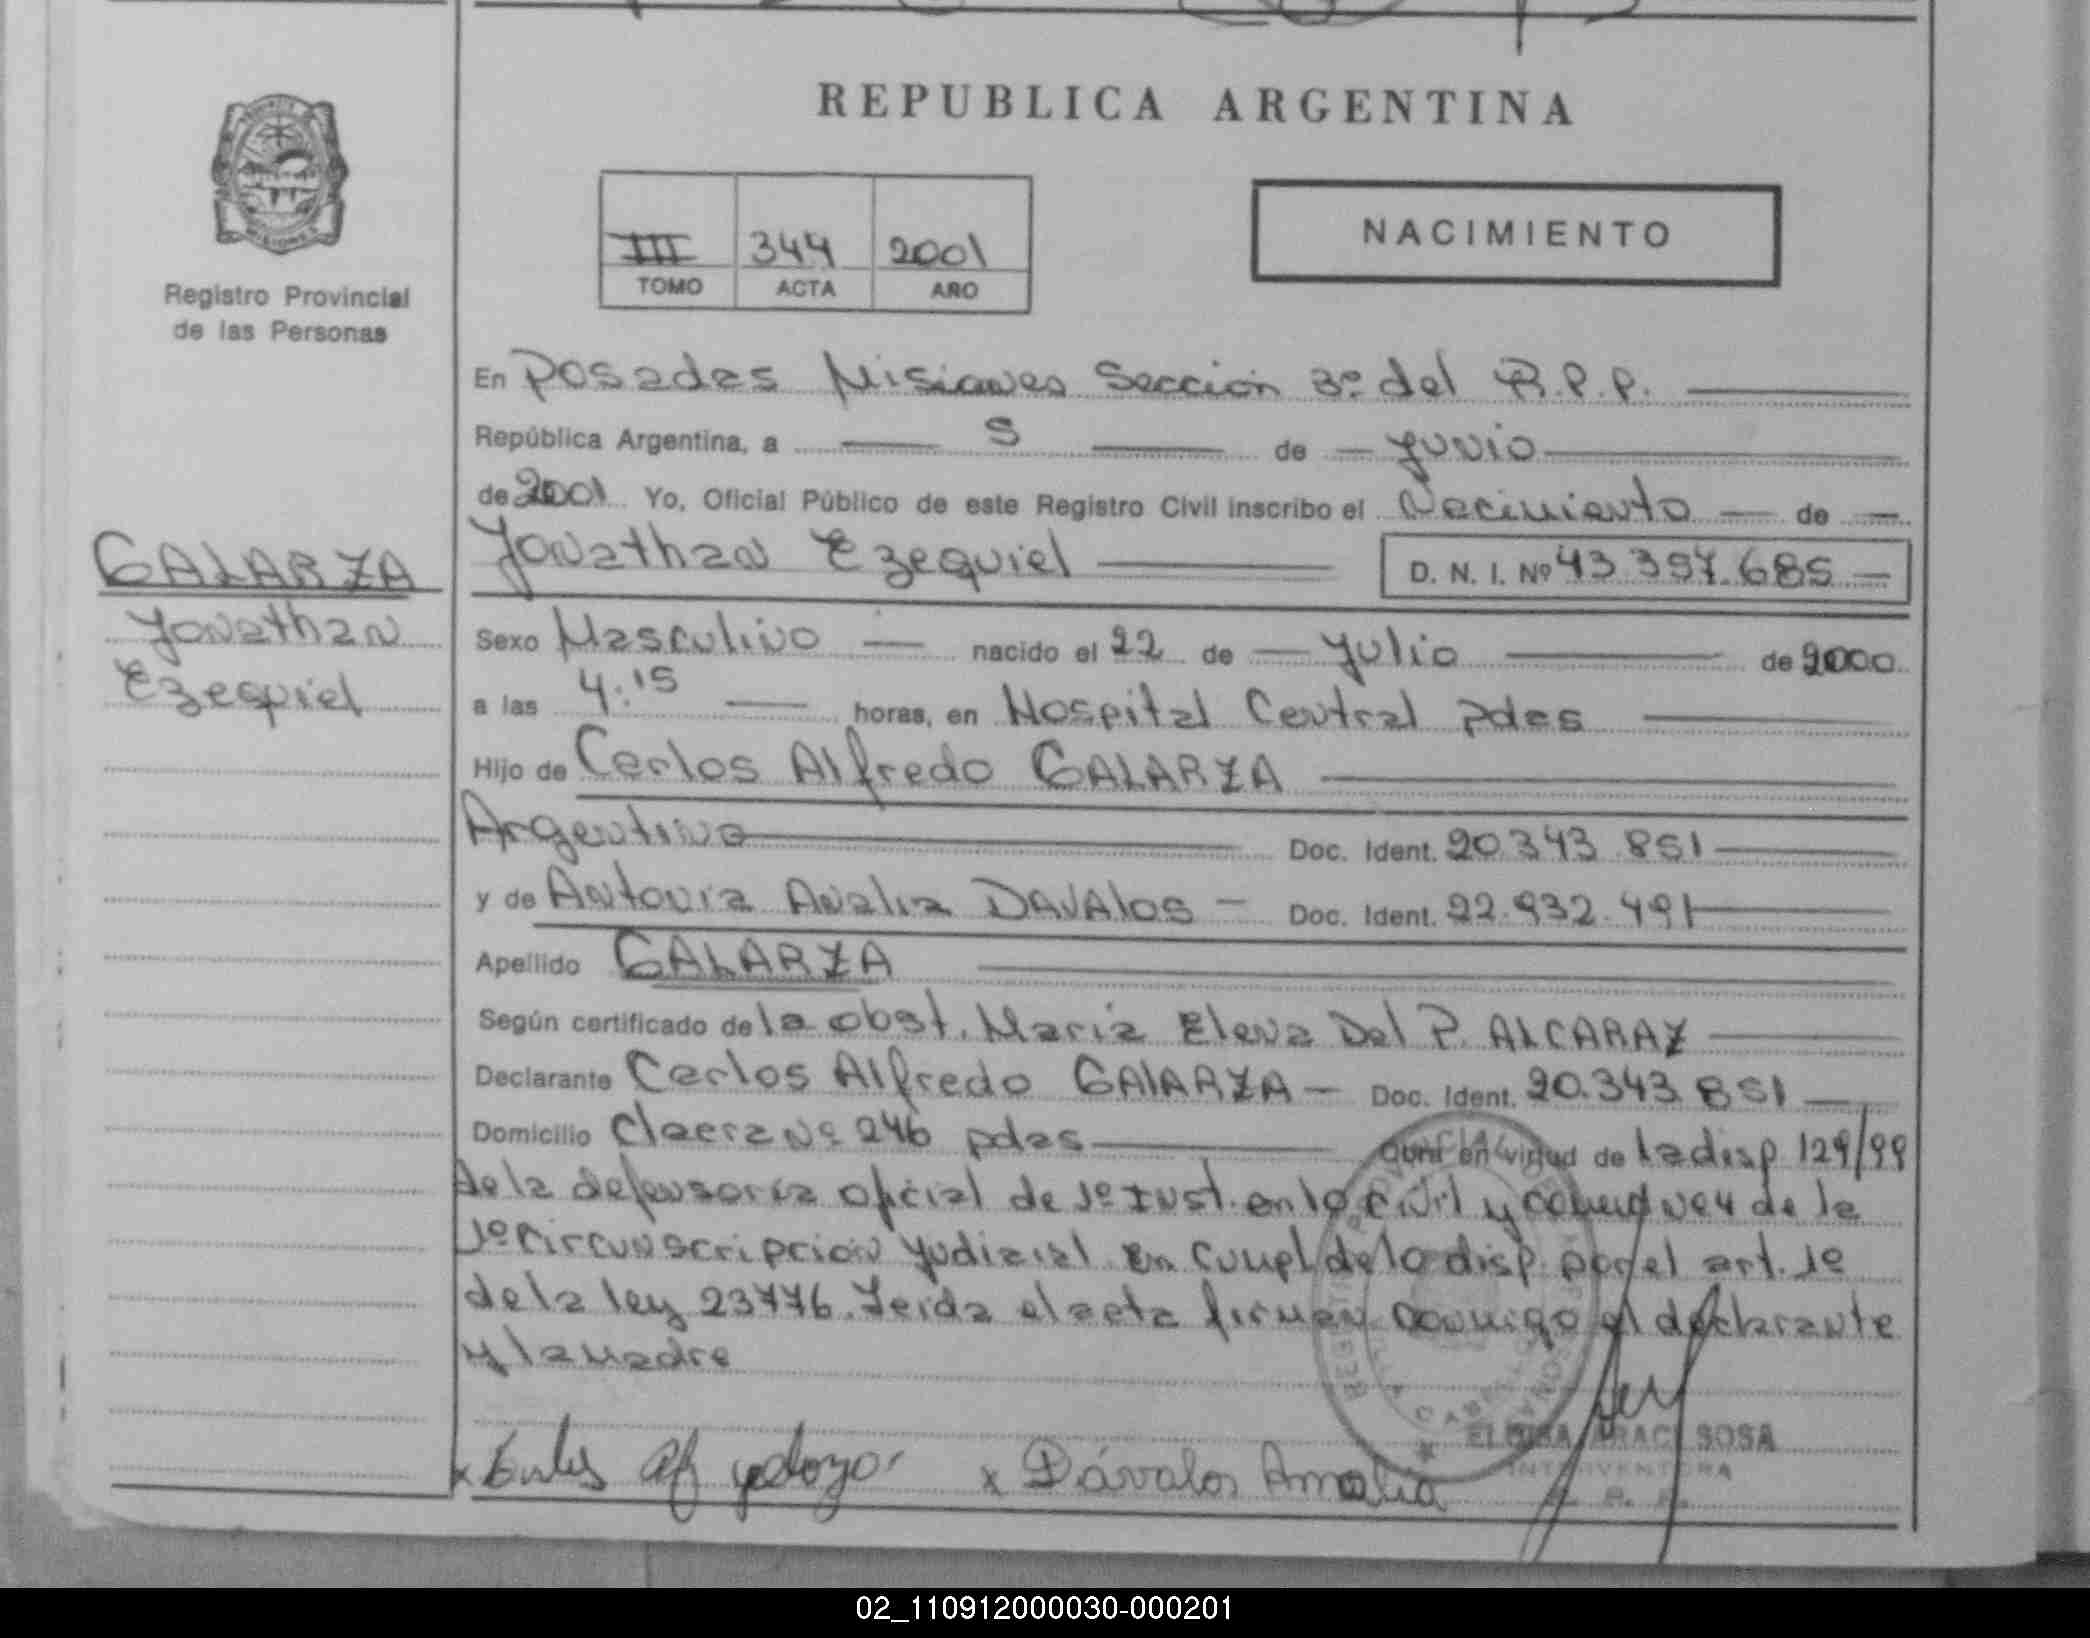 REPUBLICA ARGENTINA
NACIMIENTO
III 344 2001
TOMO ACTA AÑO
MISIONES
Registro Provincial
de las Personas
GALARZA
Jonathan
Ezequiel
En Posadas Misiones Sección 3º del R.P.P.
República Argentina, a 5 de Junio
de 2001 Yo, Oficial Público de este Registro Civil inscribo el Nacimiento de
Jonathan Ezequiel D. N. I. Nº 43.397.685
Sexo Masculino nacido el 22 de Julio de 2000
a las 4:15 horas, en Hospital Central pdas
Hijo de Carlos Alfredo GALARZA
Argentino Doc. Ident. 20.343.851
y de Antonia Analia DAVALOS Doc. Ident. 22.932.491
Apellido GALARZA
Según certificado de la obst. Maria Elena Del P. ALCARAZ
Declarante Carlos Alfredo GALARZA Doc. Ident. 20.343.851
Domicilio Nº 246 pdas en virtud de la disp 129/99
de la defensoria oficial de 1º Inst. en lo civil y de la
1º circunscripción Judicial En cumpl de lo disp. por el art. 1º
de la ley 23776. Leida el acta firman conmigo el declarante
y la madre
x x Dávalos Amalia
SOSA
INTERVENTORA
02_110912000030-000201